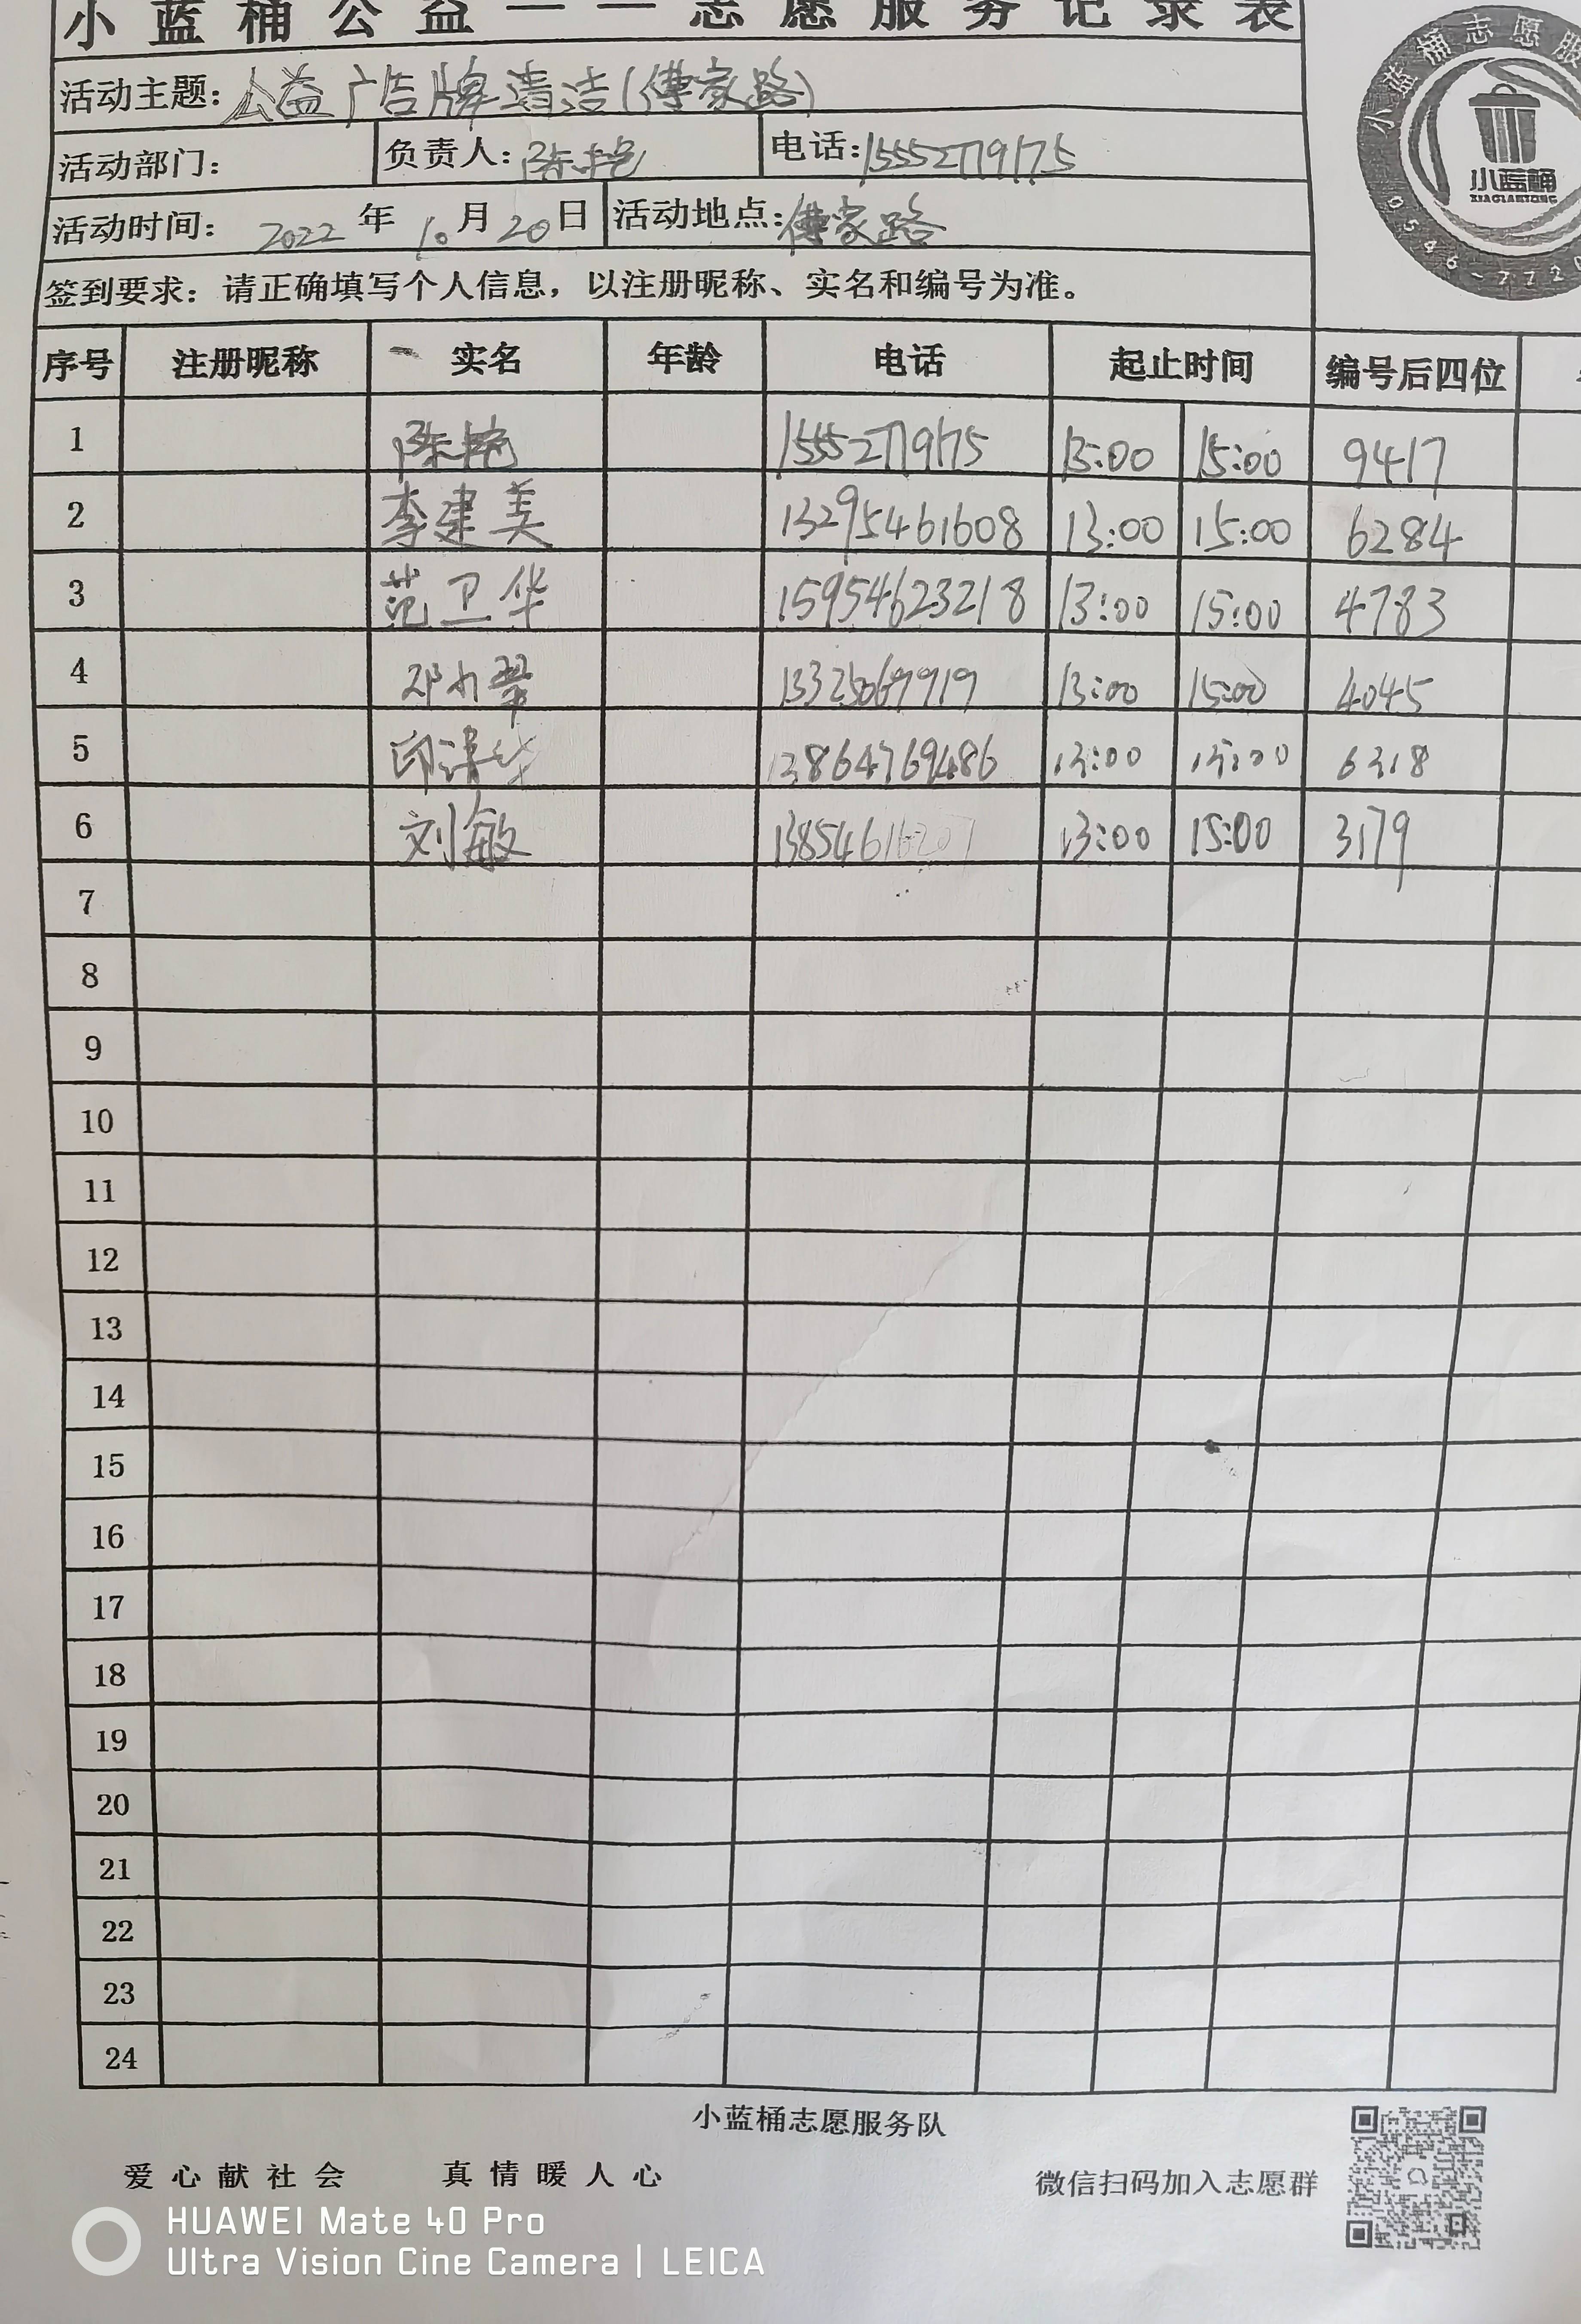 小蓝桶公益——志愿服务记录表
活动主题：公益广告牌清洁(傅家路)
活动部门： 负责人：陈艳 电话：15552779175
活动时间： 2022 年 10 月 20 日 活动地点：傅家路
签到要求：请正确填写个人信息，以注册昵称、实名和编号为准。
小蓝桶志愿服
小蓝桶
XIAOLANTONG
0546-7720
序号 注册昵称 实名 年龄 电话 起止时间 编号后四位
1 陈艳 15552779175 13:00 15:00 9417
2 李建美 13295461608 13:00 15:00 6284
3 范卫华 15954623218 13:00 15:00 4783
4 13:00 15:00 4045
5 13864769486 13:00 15:00 6318
6 刘敏 13:00 15:00 3179
7
8
9
10
11
12
13
14
15
16
17
18
19
20
21
22
23
24
小蓝桶志愿服务队
爱心献社会 真情暖人心
微信扫码加入志愿群
HUAWEI Mate 40 Pro
Ultra Vision Cine Camera | LEICA